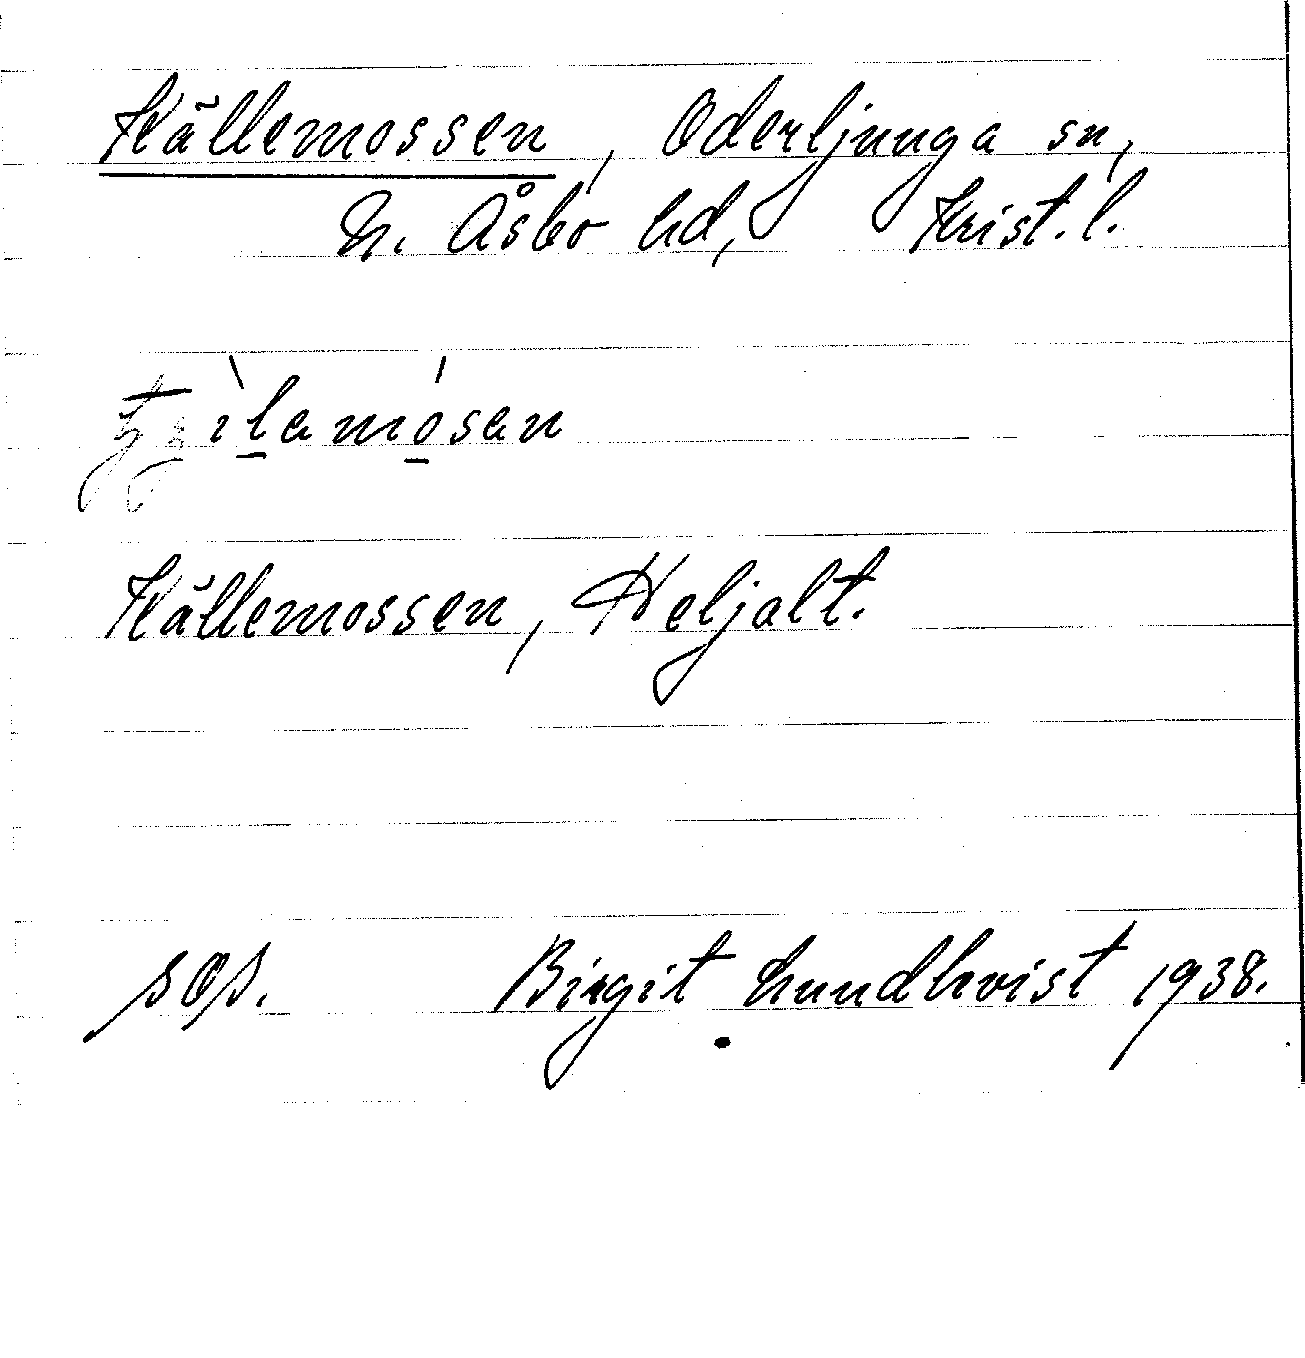 Källemossen, Oderljunga sn,
N. Åsbo hd, Krist. l.
Källemossen, Heljalt.
sos. Birgit Lundkvist 1938.